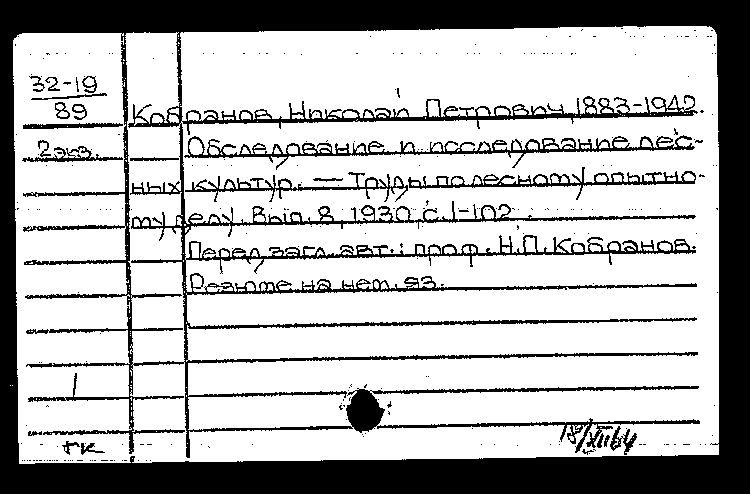 32-19
89
Кобранов, Николай Петрович, 1883-1942.
2 экз.
Обследование и исследование лес-
ных культур. — Труды по лесному опытно-
му делу. Вып. 8, 1930, с. 1-102.
Перед загл. авт.: проф. Н.П. Кобранов.
Резюме на нем. яз.
1
гк
18/XII 64